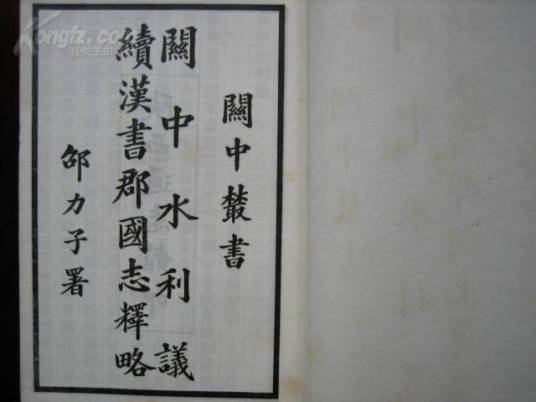 關中叢書
關中水利議
續漢書郡國志釋略
邵力子署
Kongfz.com
孔夫子旧书网